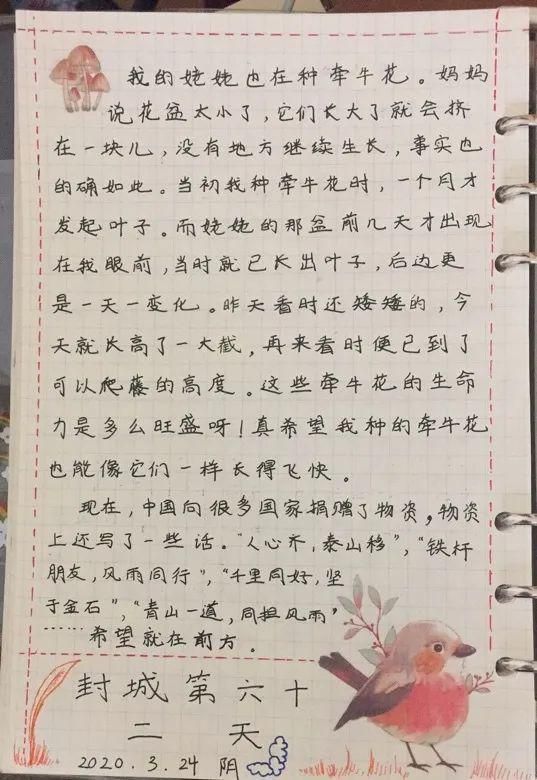 我的姥姥也在种牵牛花。妈妈
说花盆太小了，它们长大了就会挤
在一块儿，没有地方继续生长，事实也
的确如此。当初我种牵牛花时，一个月才
发起叶子。而姥姥的那盆前几天才出现
在我眼前，当时就已长出叶子，后边更
是一天一变化。昨天看时还矮矮的，今
天就长高了一大截，再来看时便已到了
可以爬藤的高度。这些牵牛花的生命
力是多么旺盛呀！真希望我种的牵牛花
也能像它们一样长得飞快。
现在，中国向很多国家捐赠了物资，物资
上还写了一些话。“人心齐，泰山移”，“铁杆
朋友，风雨同行”，“千里同好，坚
于金石”，“青山一道，同担风雨”
……希望就在前方。
封城第六十
二天
2020.3.24 阴